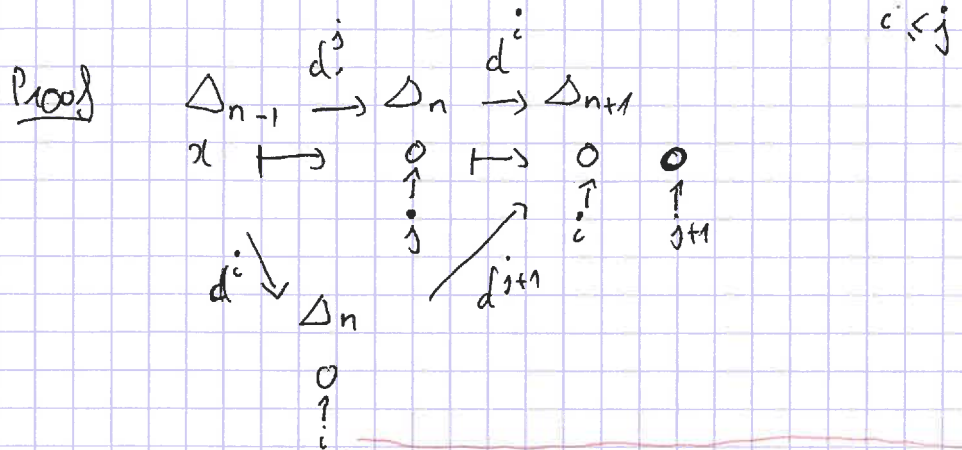 i ≤ j
Proof Δ_{n-1} \xrightarrow{d^j} Δ_n \xrightarrow{d^i} Δ_{n+1}
x ↦ 0 ↦ 0 0
↑ ↑ ↑
j i j+1
d^i ↘ ↗ d^{j+1}
Δ_n
0
↑
i